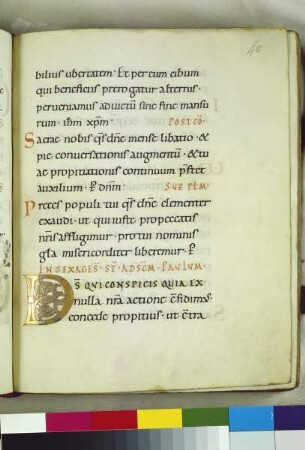 40
bilius libertatem. Et per eum cibum
qui beneficiis prerogatur alternis.
perveniamus ad victū sine fine mansu
rum. ihm xpm. POST CO
Sacrae nobis qs dne mense libatio &
pie conversationis augmentū. & tu
ae propitiationis continuum prestet
auxilium. P dnm. SUP PLM
Preces populi tui qs dne clementer
exaudi. ut qui iuste pro peccatis
nris affligimur. pro tui nominis
gla misericorditer liberemur. P
IN SEXAGES. ST. AD SCM PAULUM.
DS QUI CONSPICIS QUIA EX
nulla nra actione cfidimus.
concede propitius. ut ctra